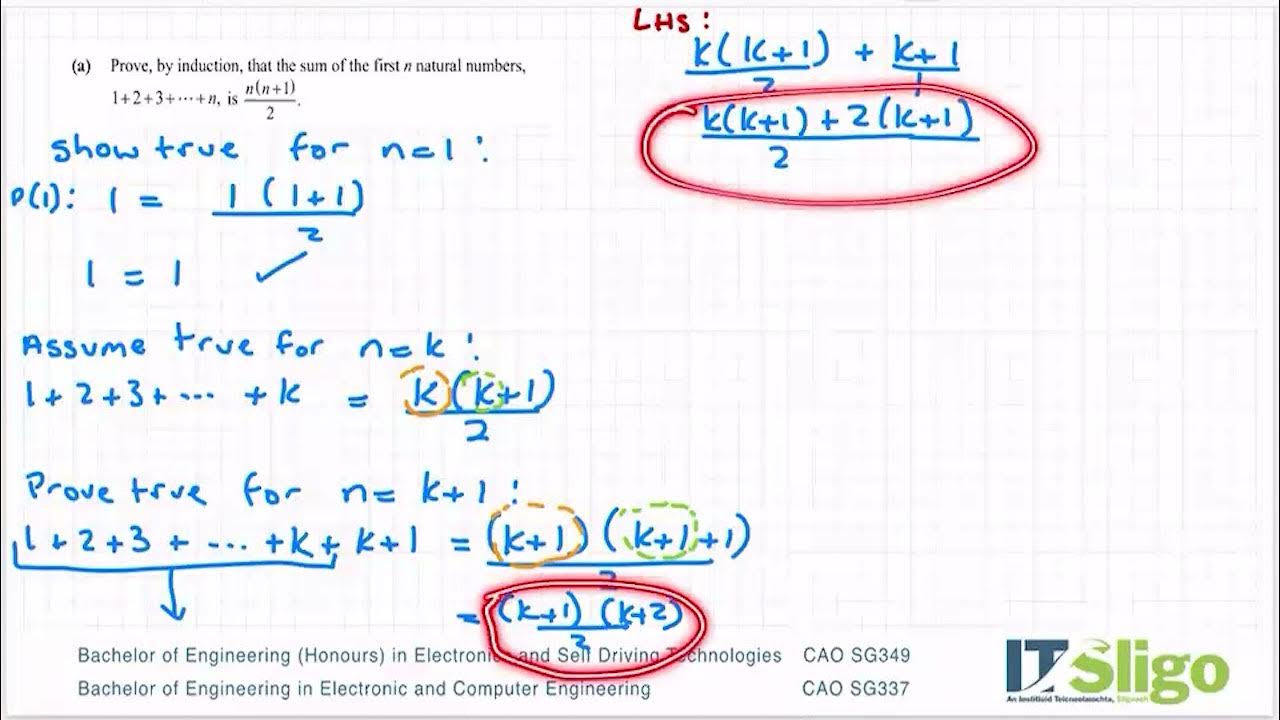 (a) Prove, by induction, that the sum of the first n natural numbers,
1+2+3+⋯+n, is n(n+1)/2.
show true for n=1:
P(1): 1 = 1(1+1)/2
1 = 1 ✓
Assume true for n=k:
1+2+3+... +k = k(k+1)/2
Prove true for n= k+1:
1+2+3+...+k+ k+1 = (k+1)(k+1+1)/2
= (k+1)(k+2)/2
LHS:
k(k+1)/2 + k+1/1
k(k+1)+2(k+1)/2
Bachelor of Engineering (Honours) in Electronic and Self Driving Technologies CAO SG349
Bachelor of Engineering in Electronic and Computer Engineering CAO SG337
IT Sligo
An Institiúid Teicneolaíochta, Sligeach